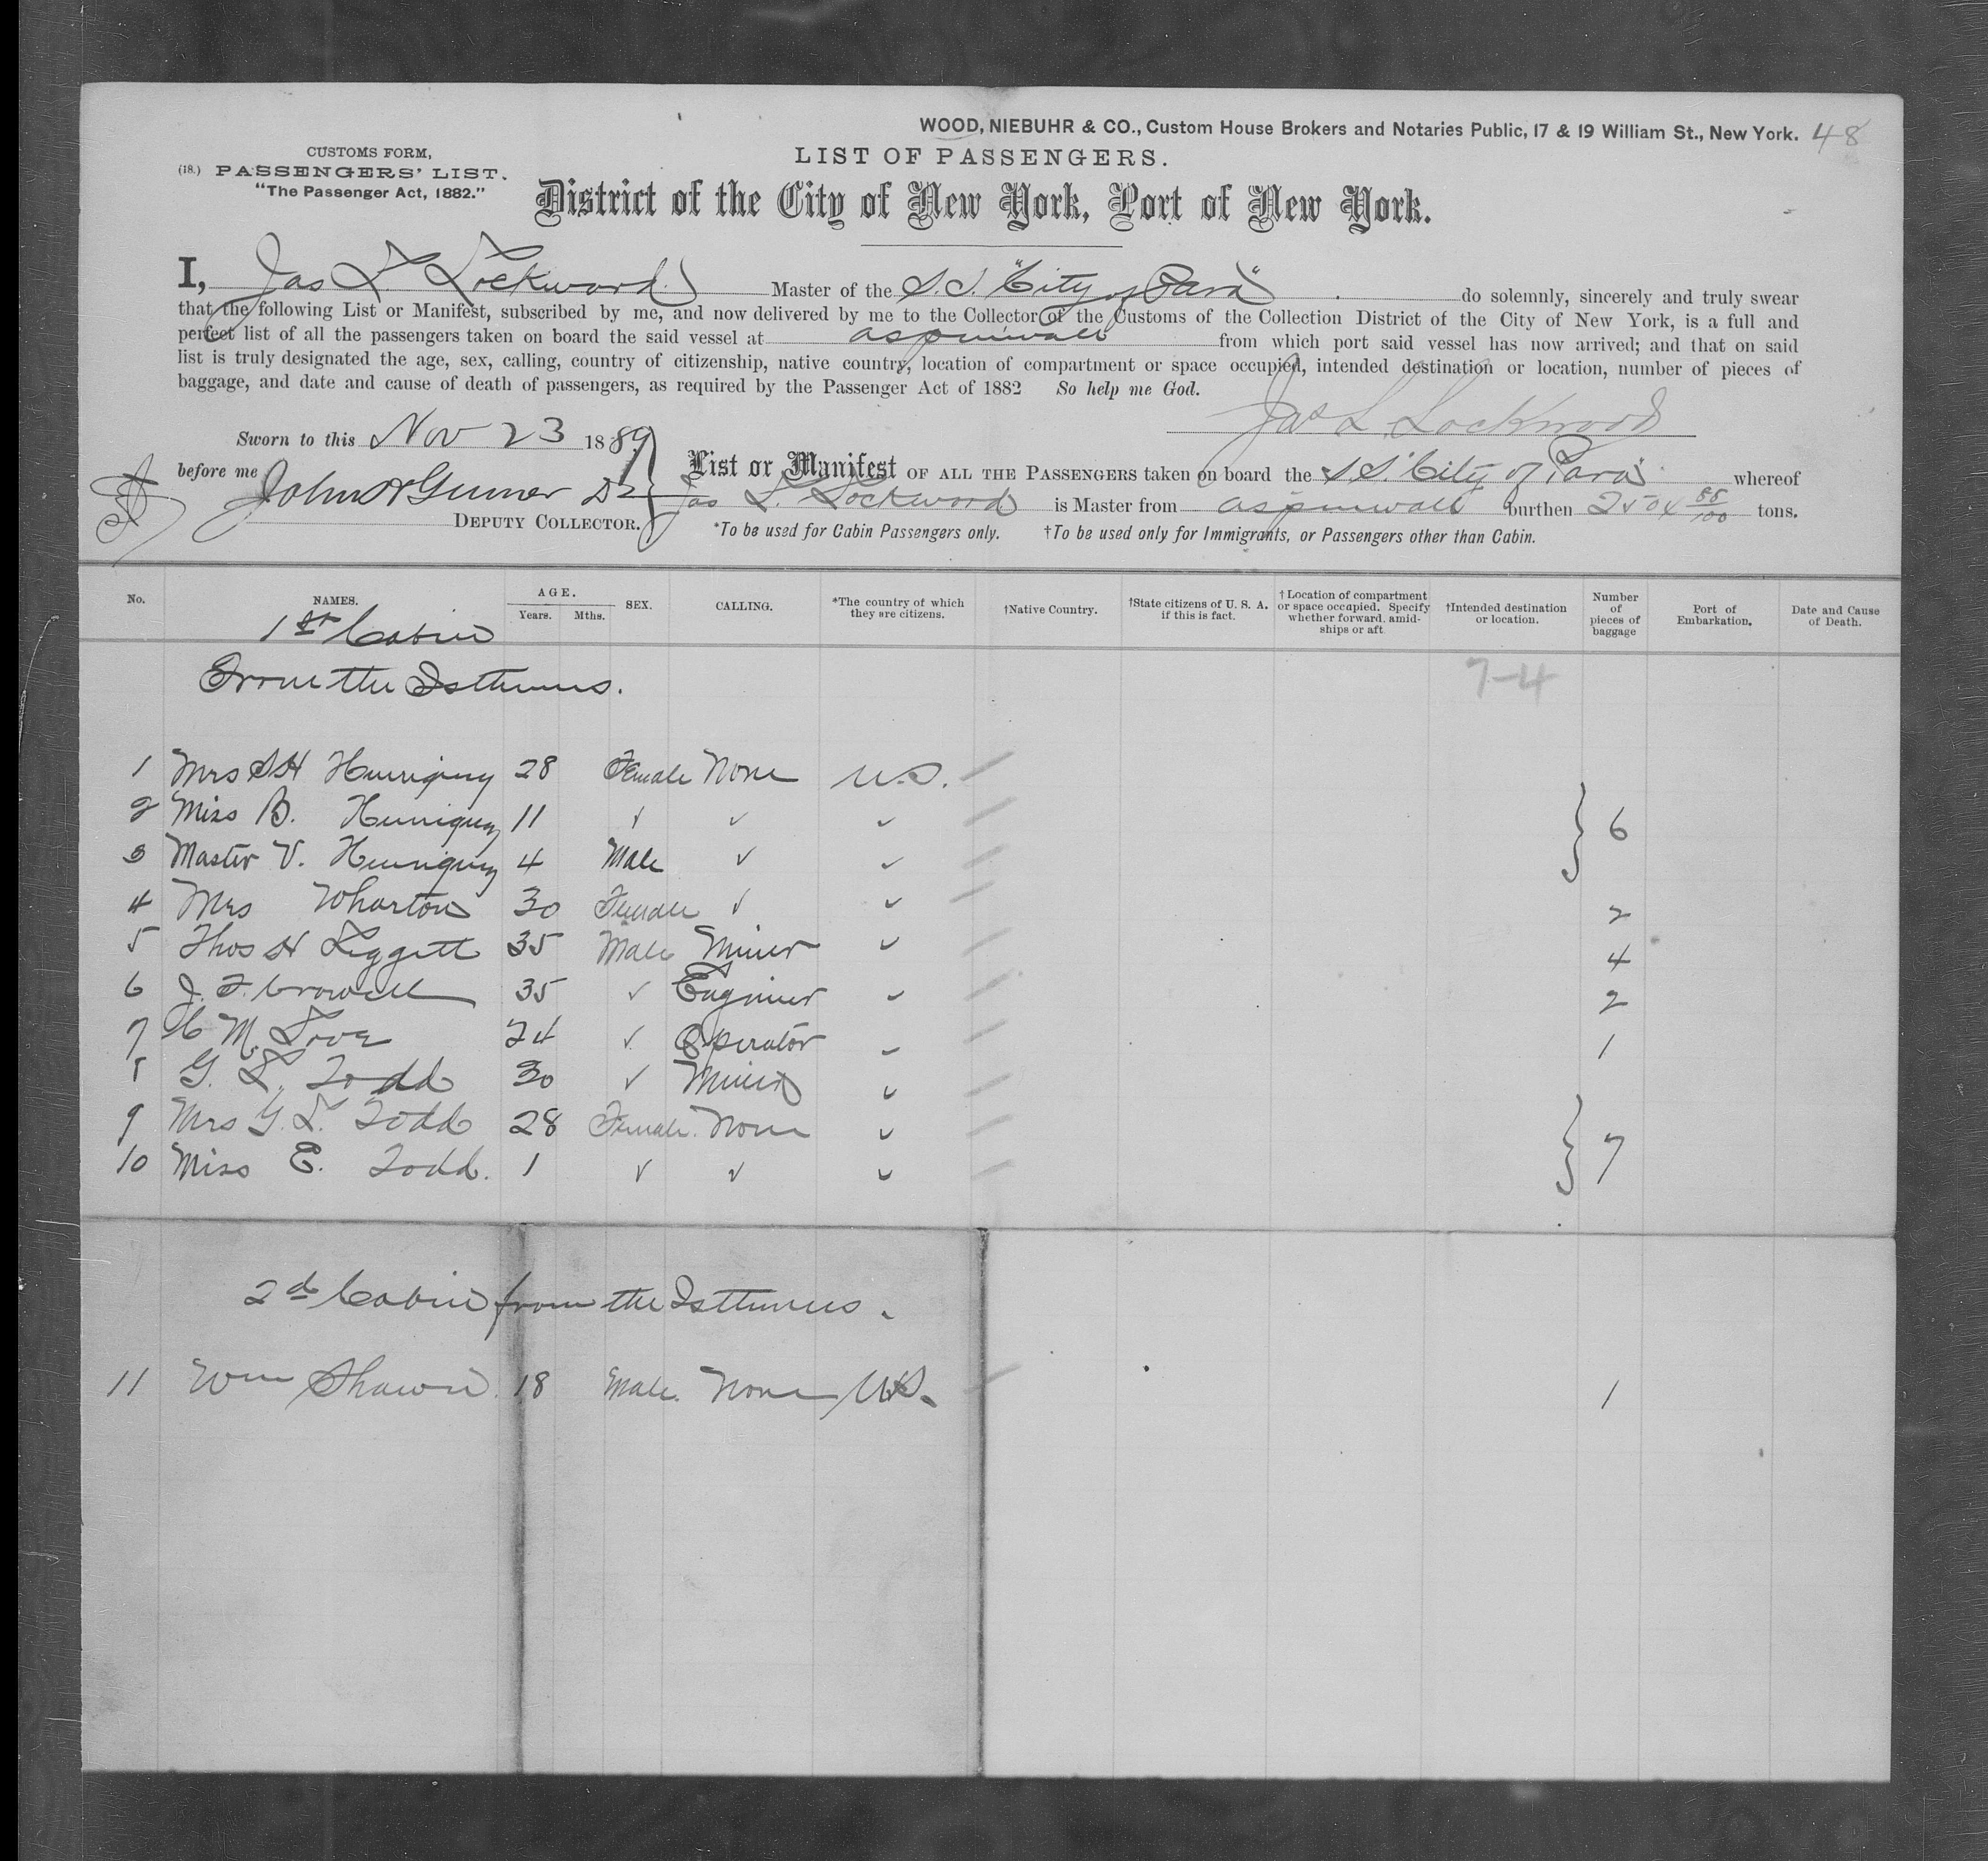 WOOD, NIEBUHR & CO., Custom House Brokers and Notaries Public, 17 & 19 William St., New York. 48
CUSTOMS FORM,
(18.) PASSENGERS' LIST.
"The Passenger Act, 1882."
LIST OF PASSENGERS.
District of the City of New York, Port of New York.
I, Jas L Lockwood Master of the S.S. "City of Para" do solemnly, sincerely and truly swear
that the following List or Manifest, subscribed by me, and now delivered by me to the Collector of the Customs of the Collection District of the City of New York, is a full and
perfect list of all the passengers taken on board the said vessel at aspinwall from which port said vessel has now arrived; and that on said
list is truly designated the age, sex, calling, country of citizenship, native country, location of compartment or space occupied, intended destination or location, number of pieces of
baggage, and date and cause of death of passengers, as required by the Passenger Act of 1882 So help me God.
Jas L. Lockwood
Sworn to this Nov 23 1889
before me John
DEPUTY COLLECTOR.
List or Manifest OF ALL THE PASSENGERS taken on board the SS. City of Para whereof
Jas L. Lockwood is Master from aspinwall burthen 2504 55/100 tons.
*To be used for Cabin Passengers only. †To be used only for Immigrants, or Passengers other than Cabin.
No. NAMES. AGE. Years. Mths. SEX. CALLING. *The country of which they are citizens. †Native Country. †State citizens of U. S. A. if this is fact. †Location of compartment or space occupied. Specify whether forward, amidships or aft †Intended destination or location. Number of pieces of baggage Port of Embarkation. Date and Cause of Death.
1st Cabin
From the Isthmus. 7-4
1 Mrs SH 28 Female None U.S.
2 Miss B. 11 ✓ ✓ ✓ 6
3 Master V. 4 Male ✓ ✓
4 Mrs Wharton 30 Female ✓ ✓ 2
5 Thos H Liggett 35 Male Miner ✓ 4
6 J. F. Crowell 35 ✓ Engineer ✓ 2
7 C M. Love 24 ✓ Operator ✓ 1
8 G. L. Todd 30 ✓ Miner ✓
9 Mrs G. L. Todd 28 Female. None ✓ 7
10 Miss E. Todd. 1 ✓ ✓ ✓
2d Cabin from the Isthmus.
11 Wm Shawn. 18 Male. None U.S. 1